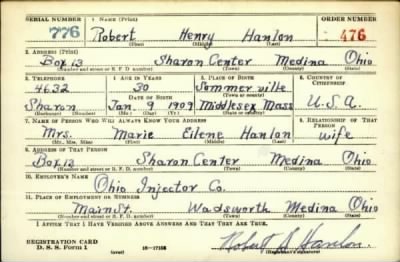 SERIAL NUMBER 1. NAME (Print) ORDER NUMBER
776 Robert Henry Hanlon 476
(First) (Middle) (Last)
2. ADDRESS (Print)
Box 13 Sharon Center Medina Ohio
(Number and street or R. F. D. number) (Town) (County) (State)
3. TELEPHONE 4. AGE IN YEARS 5. PLACE OF BIRTH 6. COUNTRY OF CITIZENSHIP
4632 30 Sommerville
DATE OF BIRTH (Town or county)
Sharon Jan 9 1909 Middlesex Mass U.S.A.
(Exchange) (Mo.) (Day) (Yr.) (State or country)
7. NAME OF PERSON WHO WILL ALWAYS KNOW YOUR ADDRESS 8. RELATIONSHIP OF THAT PERSON
Mrs. Marie Eilene Hanlon wife
(Mr., Mrs., Miss) (First) (Middle) (Last)
9. ADDRESS OF THAT PERSON
Box 13 Sharon Center Medina Ohio
(Number and street or R. F. D. number) (Town) (County) (State)
10. EMPLOYER'S NAME
Ohio Injector Co.
11. PLACE OF EMPLOYMENT OR BUSINESS
Main St. Wadsworth Medina Ohio
(Number and street or R. F. D. number) (Town) (County) (State)
I AFFIRM THAT I HAVE VERIFIED ABOVE ANSWERS AND THAT THEY ARE TRUE.
REGISTRATION CARD
D. S. S. Form 1 (over) 16—17105 Robert H Hanlon.
(Registrant's signature)